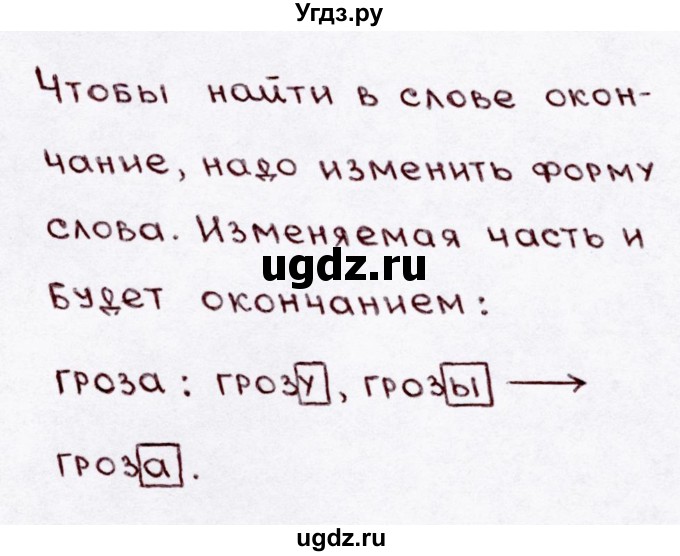 Угдз.ру
Чтобы найти в слове окон-
чание, надо изменить форму
слова. Изменяемая часть и
ugdz.ru
будет окончанием:
гроза: грозу, грозы →
гроза.
ugdz.ru